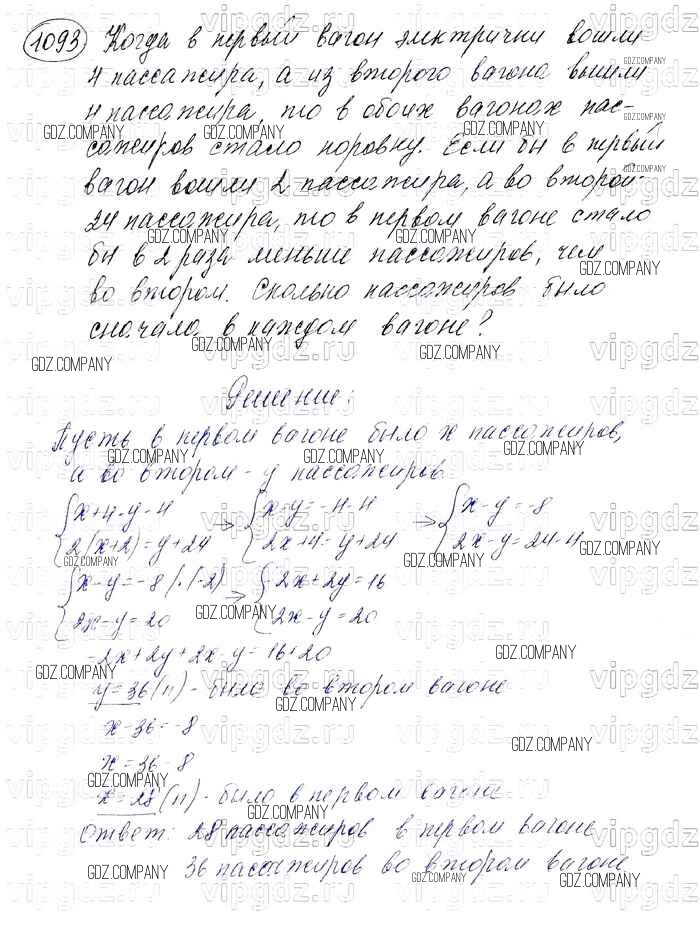 1093 Когда в первый вагон электрички вошли
4 пассажира, а из второго вагона вышли
4 пассажира, то в обоих вагонах пас-
сажиров стало поровну. Если бы в первый
вагон вошли 2 пассажира, а во второй-
24 пассажира, то в первом вагоне стало
бы в 2 раза меньше пассажиров, чем
во втором. Сколько пассажиров было
сначала в каждом вагоне?
Решение:
Пусть в первом вагоне было x пассажиров,
а во втором - y пассажиров
x+4=y-4 → x-y=-4-4 → x-y=-8
2(x+2)=y+24 2x+4=y+24 2x-y=24-4
x-y=-8 |·(-2) → -2x+2y=16
2x-y=20 2x-y=20
-2x+2y+2x-y=16+20
y=36 (п) - было во втором вагоне
x-36=-8
x=36-8
x=28 (п) - было в первом вагоне
Ответ: 28 пассажиров в первом вагоне
36 пассажиров во втором вагоне
GDZ.COMPANY
vipgdz.ru